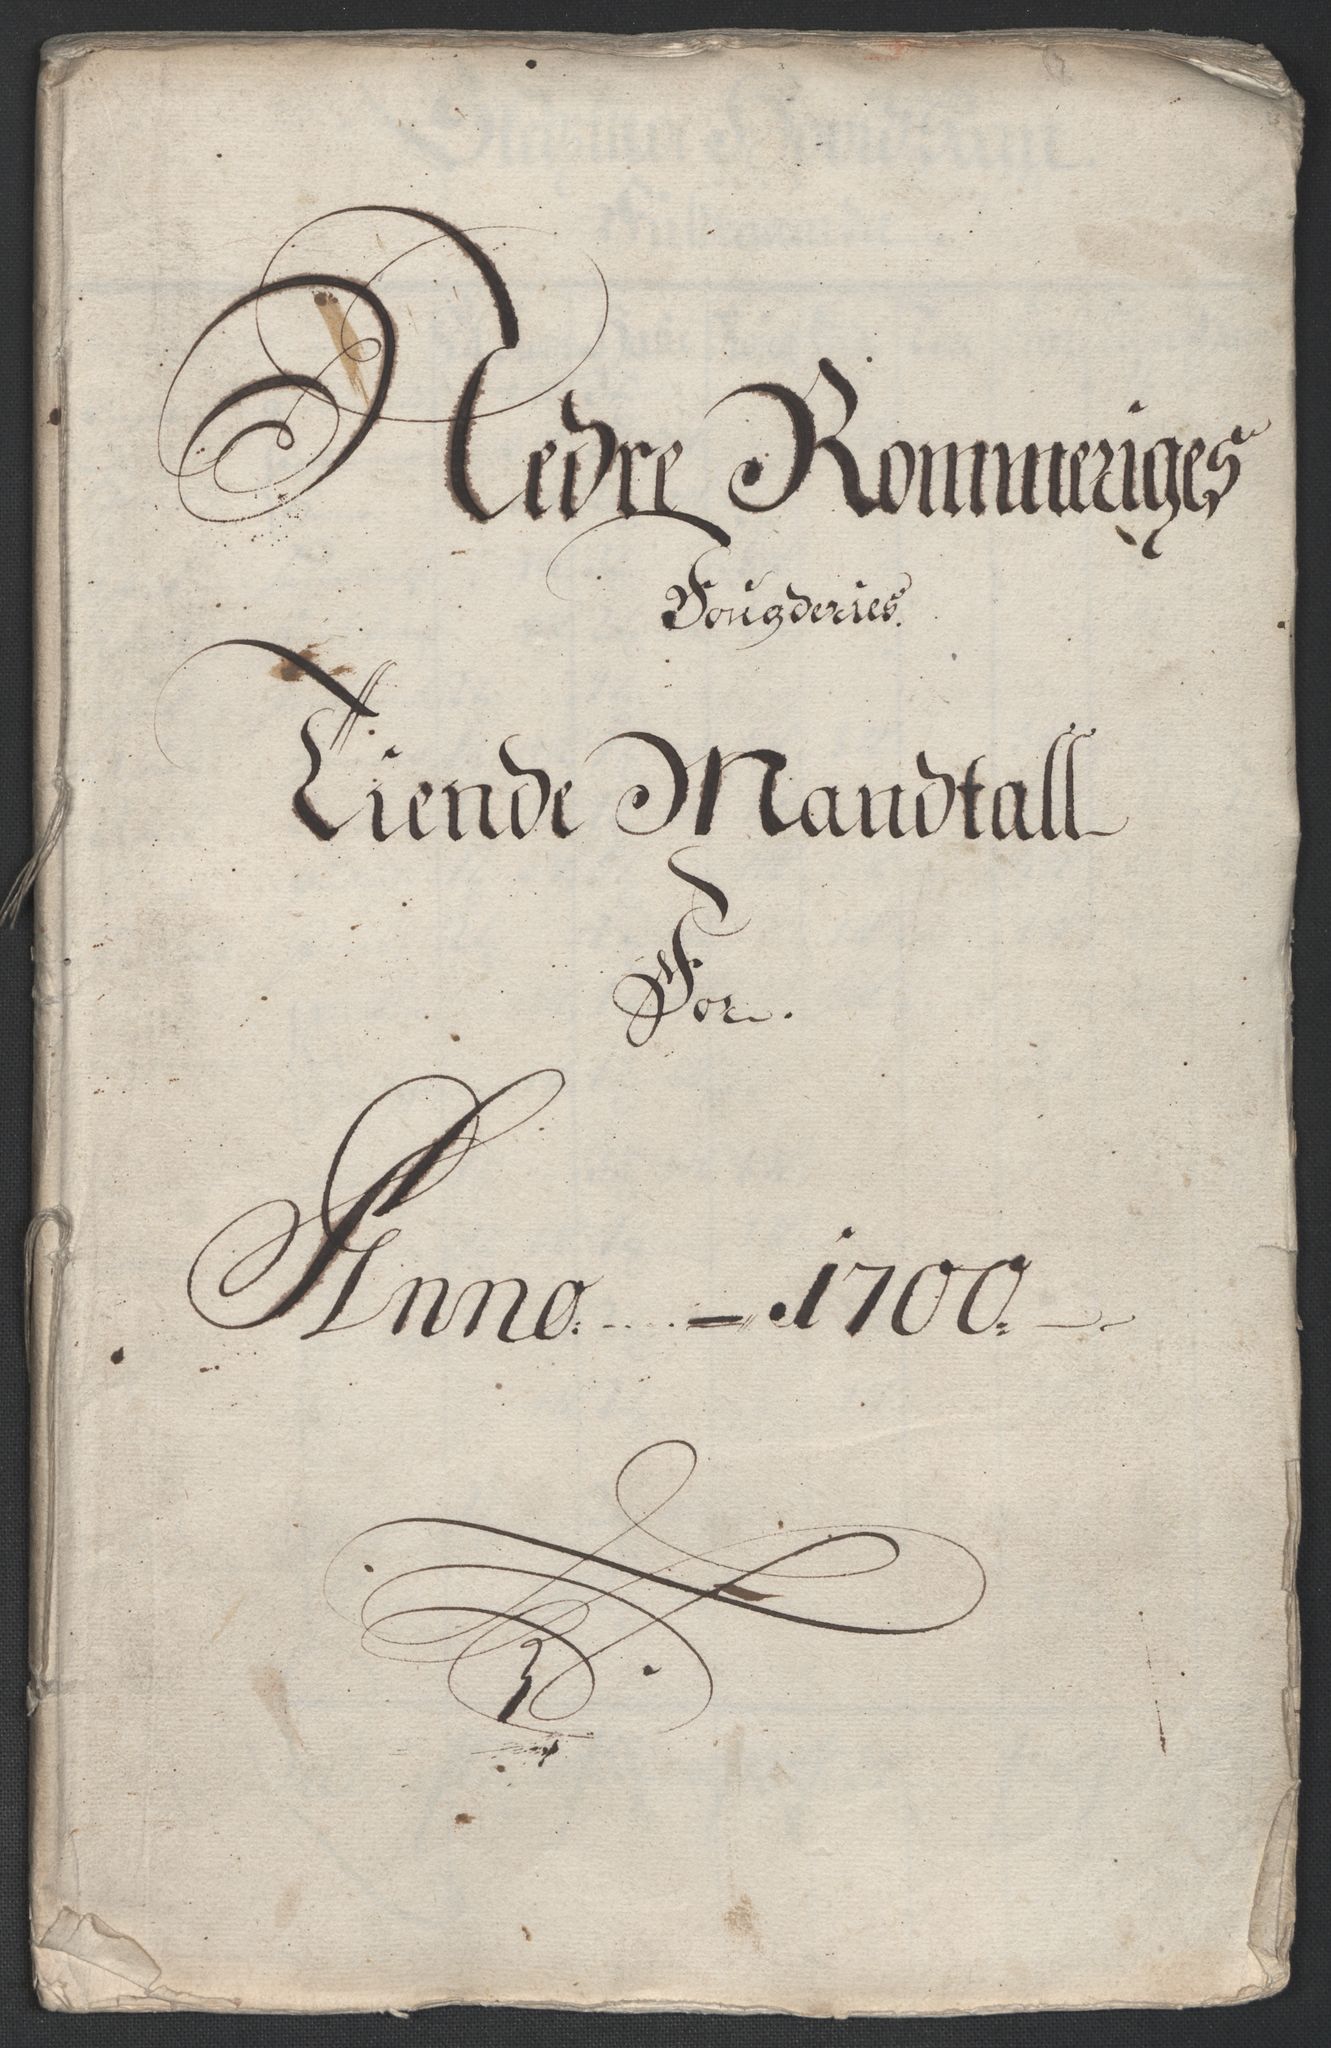 Nedre Rommeriges
Fougderies.
Tiende Mandtall
For.
Anno. 1700.